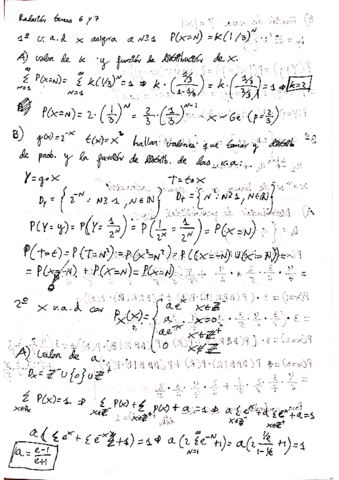 Relación temas 6 y 7
1º v.a.d X asigna a N≥1 P(X=N)=K(1/3)^N
A) valor de K y función de distribución de X.
∑_{N=1}^∞ P(X=N) = ∑_{N=1}^∞ K(1/3)^N = 1 ⇒ K · (1/3)/(1-1/3) = K · (1/3)/(2/3) = 1 ⇒ K=2
P(X=N) = 2·(1/3)^N = 2/3 · (1/3)^{N-1} X ~ Ge(p=2/3)
B) g(x)=2^{-x} t(x)=x² hallar valores que toman y
de prob. y la función de distrib. de las v.a:
Y=g∘X T=t∘X
D_Y={2^{-N}: N≥1, N∈ℕ} D_T={N²: N≥1, N∈ℕ}
P(Y=y) = P(Y=1/2^N) = P(1/2^X = 1/2^N) = P(X=N)
P(T=t) = P(T=N²) = P(X²=N²) = P((X=-N)∪(X=N)) =
= P(X=-N) + P(X=N) = P(X=N)
2º X v.a.d con P_X(x) = { ae^x x∈ℤ^-
a x=0
ae^{-x} x∈ℤ^+
0 x∉ℤ
A) Valor de a.
D_X = ℤ^- ∪ {0} ∪ ℤ^+
∑_{x∈D_X} P(x) = 1 ⇒ ∑_{x∈ℤ^-} P(x) + ∑_{x∈ℤ^+} P(x) + a = 1 ⇒ a∑e^x + a∑e^{-x} + a = 1
a(∑e^x + ∑e^{-x} + 1) = 1 ⇒ a(2∑_{N=1}^∞ e^{-N} + 1) = a(2 (1/e)/(1-1/e) + 1) = 1
a = (e-1)/(e+1)